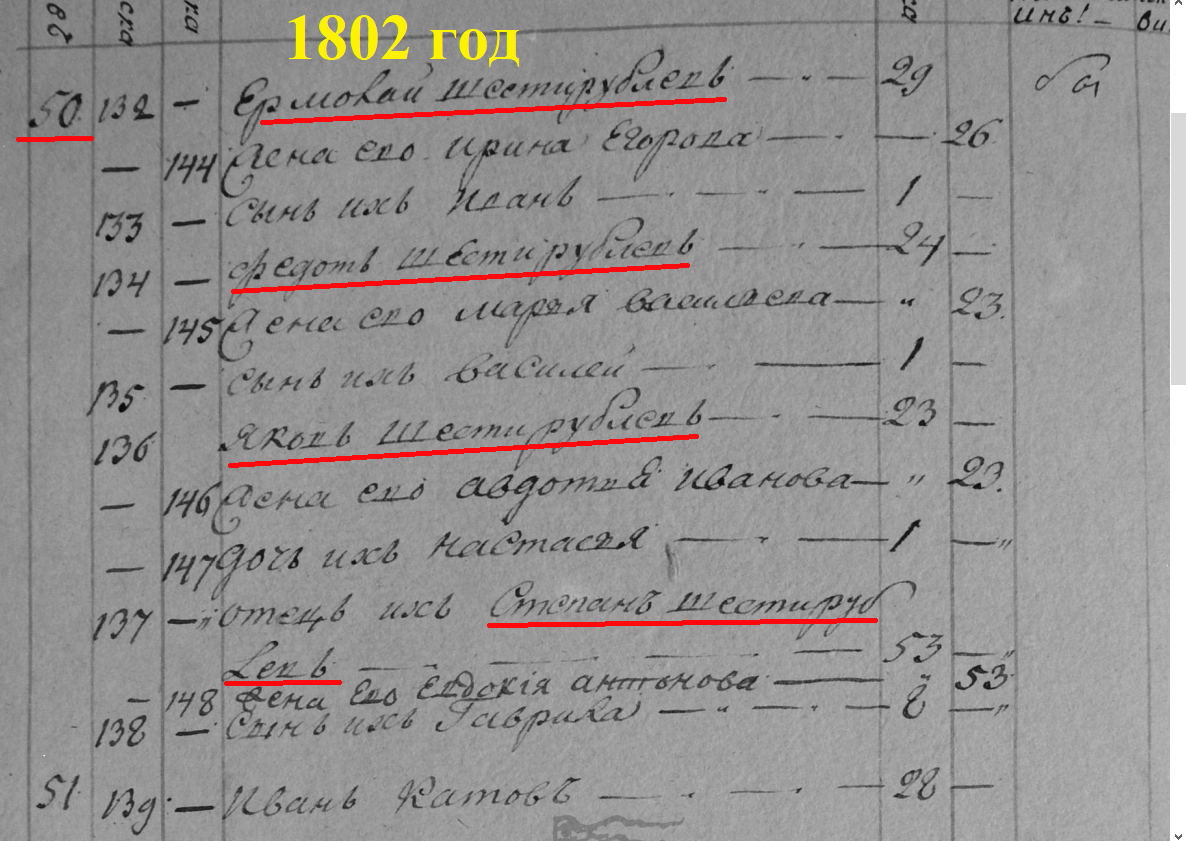 1802 год
50 132 — Ермолай Шестирублевъ — 29
— 144 Жена его Ирина Егорова — 26
133 — Сынъ ихъ Иванъ — 1 —
134 — Федотъ Шестирублевъ — 24 —
— 145 Жена его Марья Васильева — „ 23.
135 — Сынъ ихъ Василей — 1 —
136 Яковъ Шестирублевъ — 23 —
— 146 Жена его Авдотья Иванова — „ 23.
— 147 Дочь ихъ Настасья — 1 —„
137 — Отецъ ихъ Степанъ Шестируб
левъ — 53 —„
— 148 Жена Его Евдокія Антонова — „ 53
138 — Сынъ ихъ Гаврила — 8 —„
51 139 — Иванъ Катовъ — 28 —